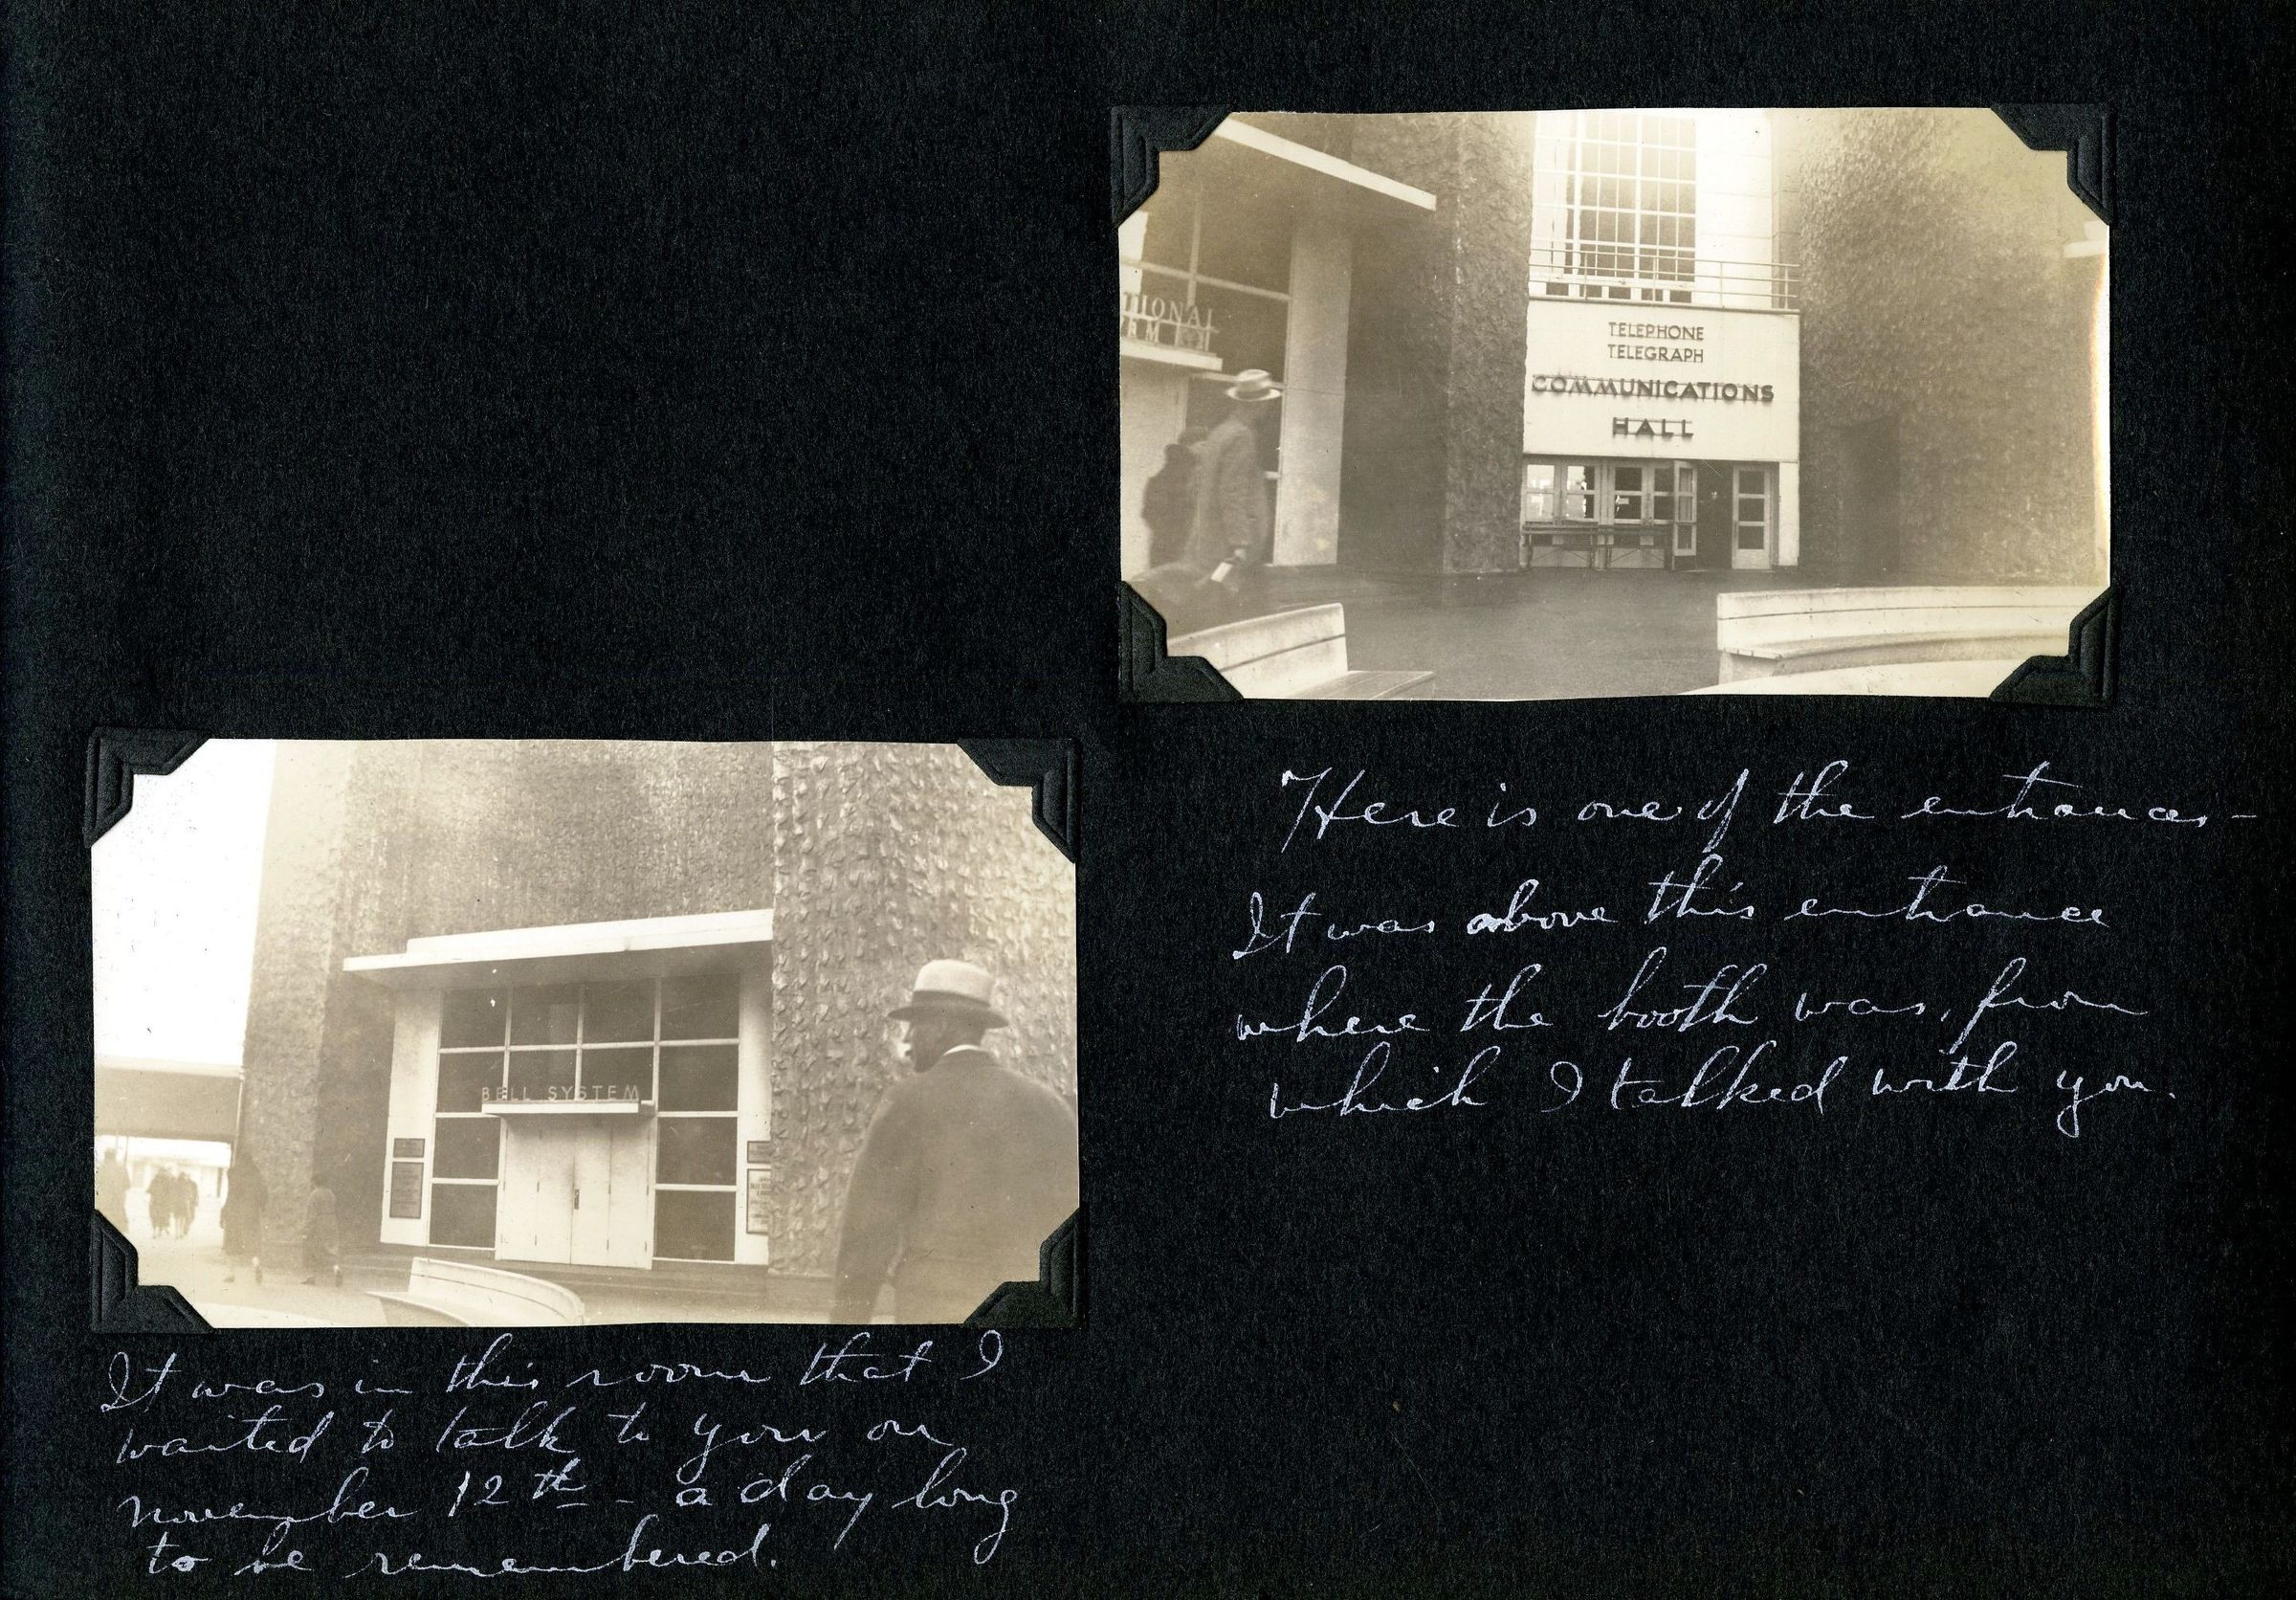 TIONAL
TELEPHONE
TELEGRAPH
COMMUNICATIONS
HALL
Here is one of the entrances -
It was above this entrance
where the booth was, from
which I talked with you.
BELL SYSTEM
It was in this room that I
waited to talk to you on
November 12th - a day long
to be remembered.